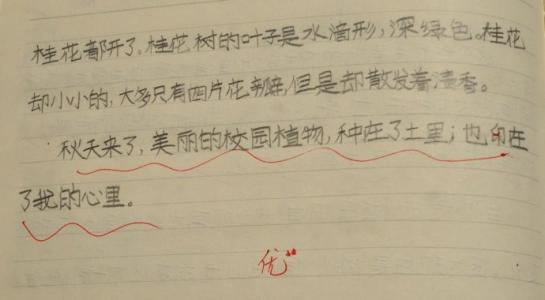 桂花都开了,桂花树的叶子是水滴形,深绿色。桂花
却小小的,大多只有四片花瓣,但是却散发着清香。
秋天来了,美丽的校园植物,种在了土里;也印在
了我的心里。
优